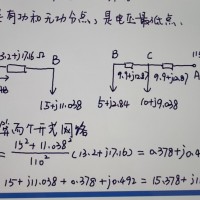 有功和无功分点，是电压最低点.
13.2+j17.16 Ω
B
15+j11.038
B
C
9.9+j2.87
9.9+j2.87
11
A
5+j2.84
10+j9.038
算两个开式网络
= 15²+11.038² / 110² (13.2+j17.16) = 0.378+j0.4
15+j11.038 + 0.378 + j0.492 = 15.378+j11.